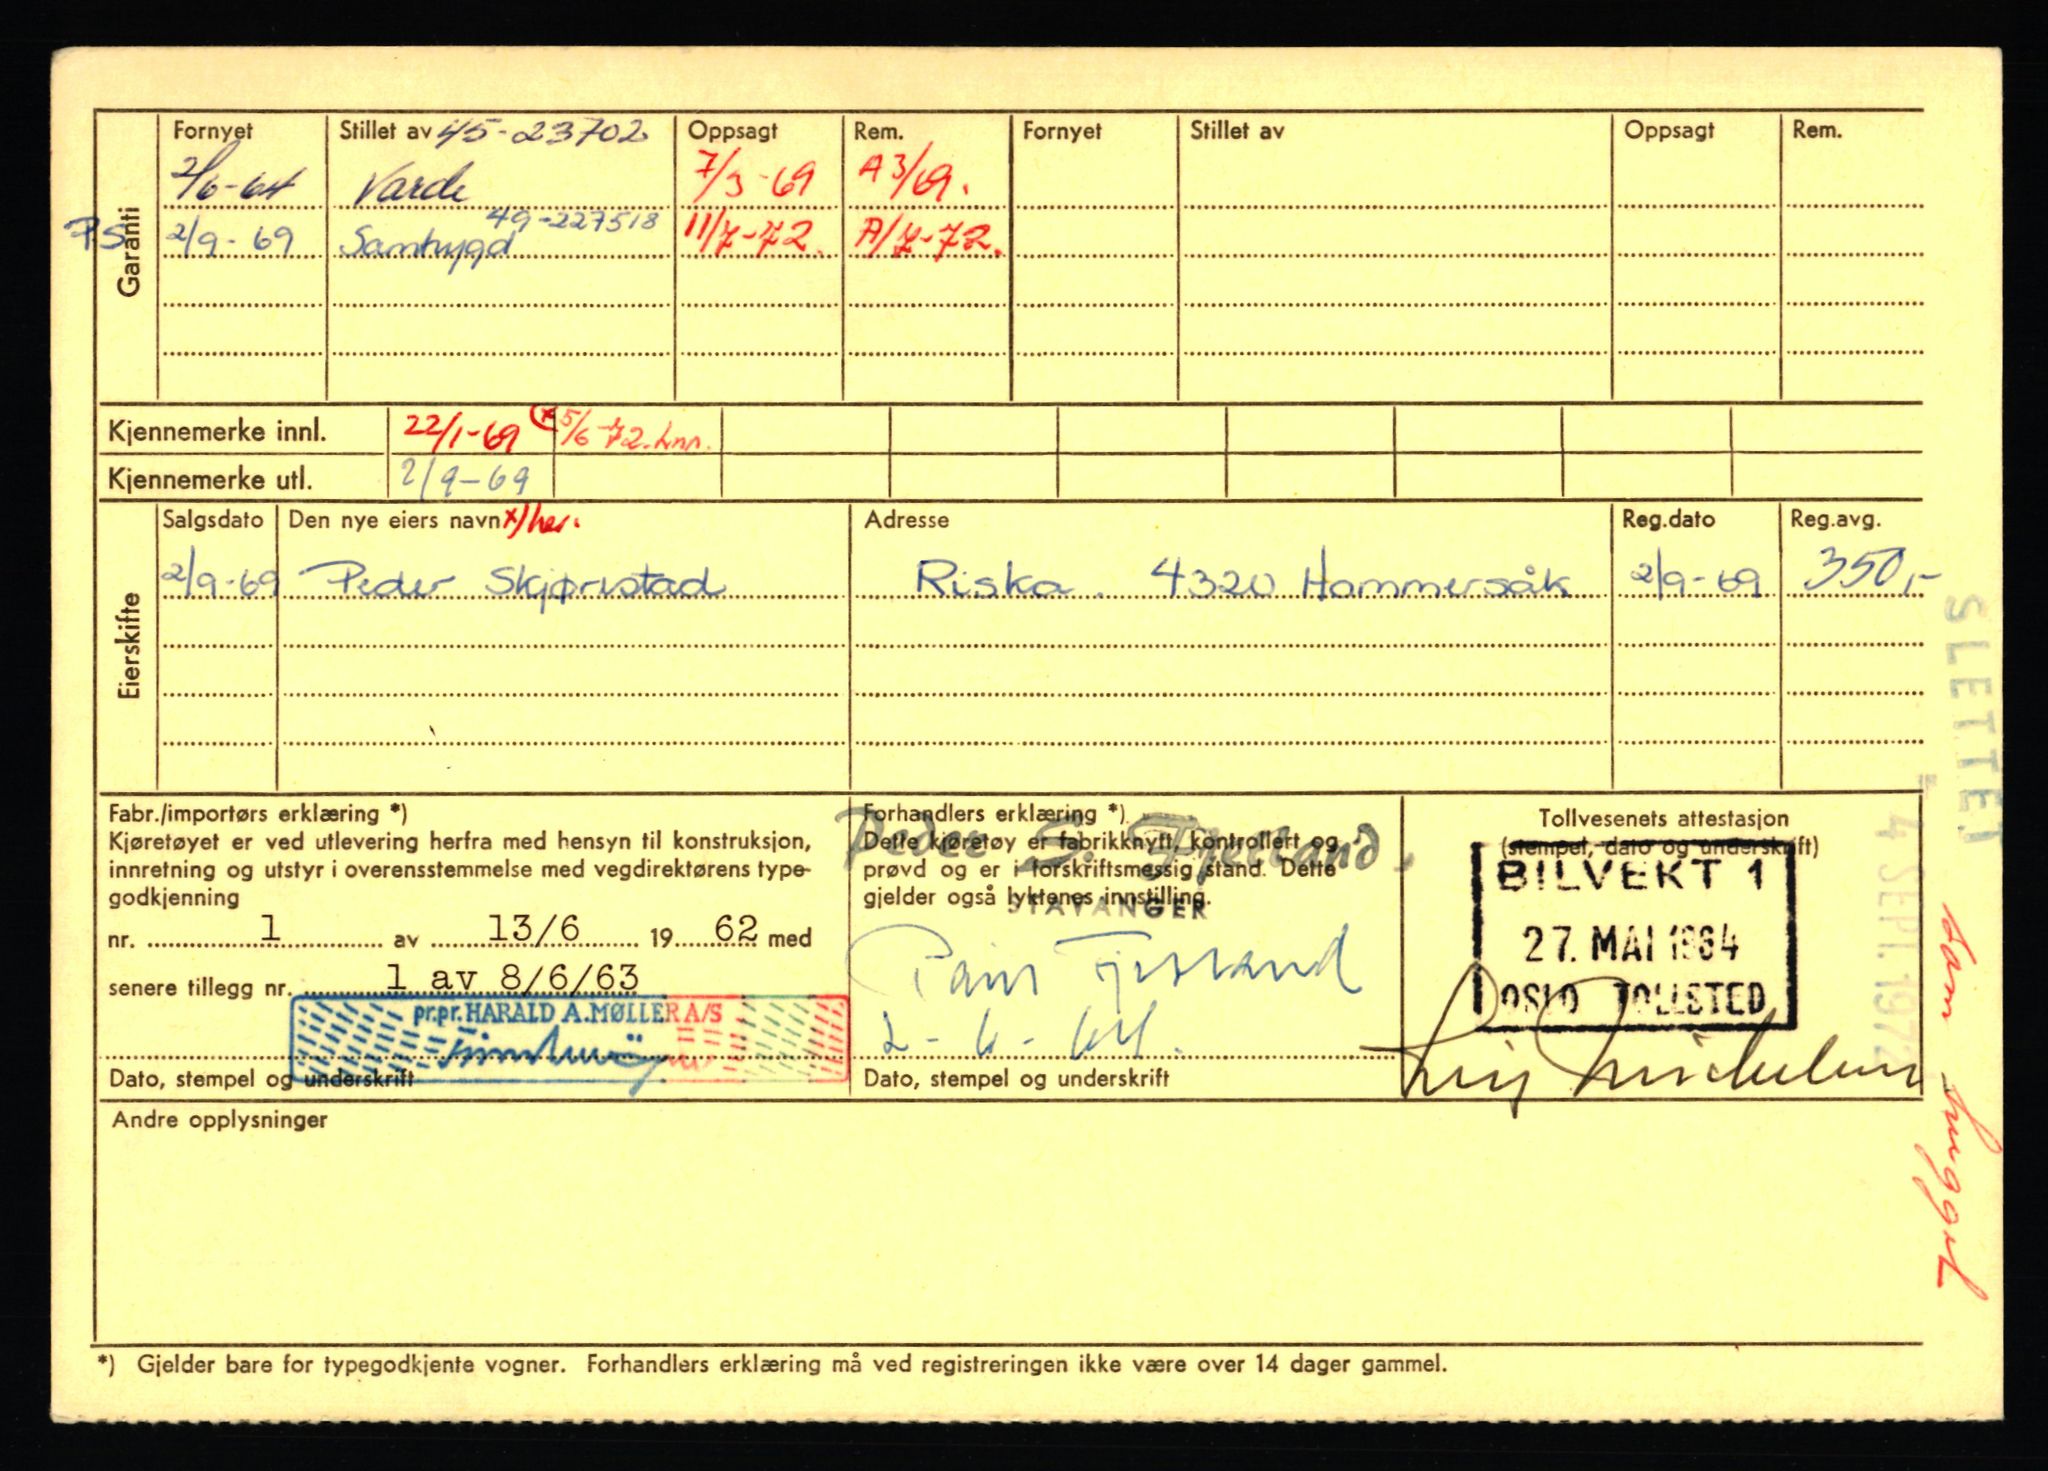 Garanti
Fornyet Stillet av 45-23702 Oppsagt Rem. Fornyet Stillet av Oppsagt Rem.
2/6-64 Varde 7/3-69 A3/69.
PS 2/9-69 Samtrygd 49-227518 11/7-72. A/7-72.
Kjennemerke innl. 22/1-69 5/6-72. Inn.
Kjennemerke utl. 2/9-69
Eierskifte
Salgsdato Den nye eiers navn Adresse Reg.dato Reg.avg.
2/9-69 Peder Skjørestad Riska. 4320 Hommersåk 2/9-69 350,-
SLETTET
4 SEPT. 1972
Fabr./importørs erklæring *)
Kjøretøyet er ved utlevering herfra med hensyn til konstruksjon,
innretning og utstyr i overensstemmelse med vegdirektørens type-
godkjenning
nr. 1 av 13/6 19 62 med
senere tillegg nr. 1 av 8/6/63
pr.pr. HARALD A. MØLLER A/S
Dato, stempel og underskrift
Forhandlers erklæring *)
Dette kjøretøy er fabrikknytt, kontrollert og
prøvd og er i forskriftsmessig stand. Dette
gjelder også lyktenes innstilling.
Peder S. Fjelland.
STAVANGER
Fjelland
2-6-64.
Dato, stempel og underskrift
Tollvesenets attestasjon
(stempel, dato og underskrift)
BILVEKT 1
27. MAI 1964
OSLO TOLLSTED
Andre opplysninger
*) Gjelder bare for typegodkjente vogner. Forhandlers erklæring må ved registreringen ikke være over 14 dager gammel.